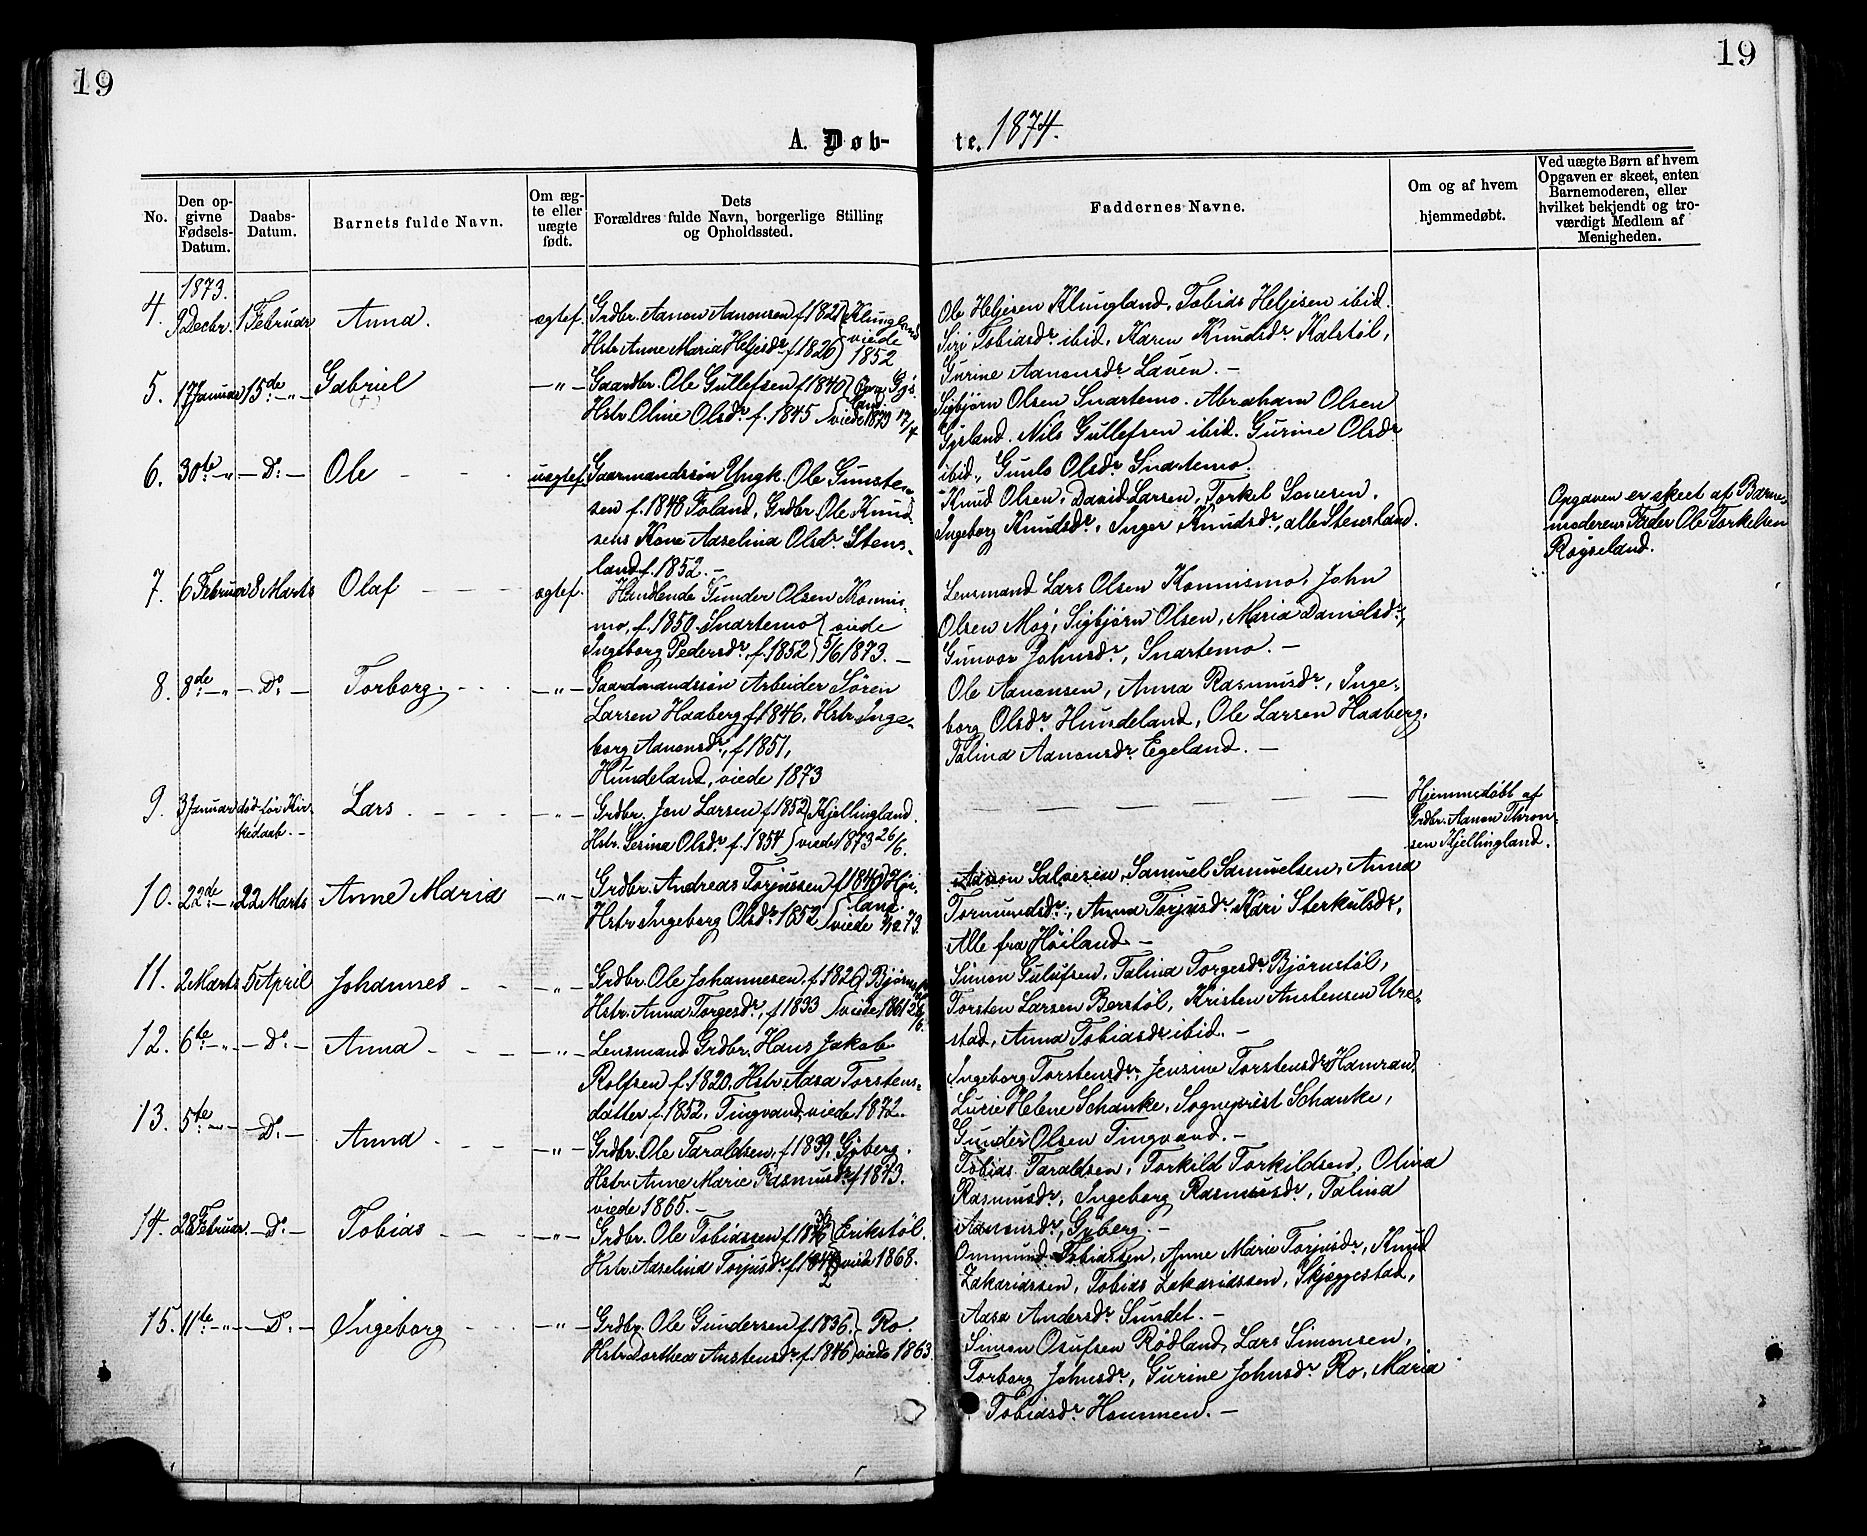 19
19
A. Døb-
te. 1874.
No.
Den op-
givne
Fødsels-
Datum.
Daabs-
Datum.
Barnets fulde Navn.
Om æg-
te eller
uægte
født.
Dets
Forældres fulde Navn, borgerlige Stilling
og Opholdssted.
Faddernes Navne.
Om og af hvem
hjemmedøbt.
Ved uægte Børn af hvem
Opgaven er skeet, enten
Barnemoderen, eller
hvilket bekjendt og tro-
værdigt Medlem af
Menigheden.
4.
1873.
9 Decbr.
1 Februar
Anna.
ægtef.
Grdbr. Aanon Aanonsen f. 1821 } Klungland
Hstr. Anne Maria Heljesdr. f. 1826 } viede
1852
Ole Heljesen Klungland, Tobias Heljesen ibid.
Siri Tobiasdr. ibid, Karen Knudsdr. Kalstøl,
Gurine Aanonsdr. Lauen. —
5.
17 Januar
15de — " —
Gabriel
(+)
— " —
Gaardbr. Ole Gullefsen f. 1840 } Øvre Gys-
land.
Hstr. Oline Olsdr. f. 1845 } viede 1873 17/4
Sigbjørn Olsen Snartemo. Abraham Olsen
Gysland. Nils Gullefsen ibid. Gurine Olsdr
ibid., Gunlo Olsdr. Snartemo.
6.
30te — " —
— Do. —
Ole - -
uægtef.
Gaarmandssøn Ungk. Ole Gunste-
sen f. 1848 Foland, Grdbr. Ole Knud-
sens Kone Aaselina Olsdr. Stens-
land f. 1852. —
Knud Olsen, David Larsen, Torkel Lonesen.
Ingeborg Knudsdr., Inger Knudsdr., alle Stensland.
Opgaven er skeet af Barne-
moderens Fader Ole Torkelsen
Røyseland.
7.
6 Februar
8 Marts
Olaf — — —
ægtef.
Handlende Gunder Olsen Konnis-
mo, f. 1850. Snartemo } viede
Ingeborg Pedersdr., f. 1852 } 5/6 1873. —
Lensmand Lars Olsen Konnismo, John
Olsen Moy, Sigbjørn Olsen, Maria Danielsdr.,
Gunvor Johnsdr., Snartemo. —
8.
8de — " —
— Do. —
Torborg. - - -
— " —
Gaardmandssøn Arbeider Søren
Larsen Haaberg f. 1846. Hstr. Inge-
borg Aanonsdr., f. 1851,
Hundeland, viede 1873
Ole Aanonsen, Anna Rasmusdr., Inge-
borg Olsdr. Hundeland, Ole Larsen Haaberg,
Talina Aanonsdr. Egeland. —
9.
3 Januar
død før Kir-
kedaab. —
Lars - - - -
— " —
Grdbr. Jon Larsen f. 1852 } Kjellingland.
Hstr. Serina Olsdr. f. 1854 } viede 1873 26/6.
— — — — — —
Hjemmedøbt af
Grdbr. Aanon Thron-
sen Kjellingland.
10.
22de — " —
22 Marts
Anne Maria
— " —
Grdbr. Andreas Torjussen f. 1840 } Høi-
land.
Hstr. Ingeborg Olsdr. 1852 } viede
73.
Aanon Salvesen, Samuel Samuelsen, Anna
Tormundsdr., Anna Torjusdr. Kari Sterkulsdr,
Alle fra Høiland —
11.
2 Marts
5 April
Johannes - -
— " —
Grdbr. Ole Johannesen, f. 1826 } Bjørnstøl
Hstr. Anna Torgesdr., f. 1833 } viede 1861
Simon Gulufsen, Talina Torgesdr. Bjørnstøl,
Torsten Larsen Berstøl, Kristen Anstensen Ure-
stad, Anna Tobiasdr. ibid. —
12.
6te — " —
— Do. —
Anna - - -
— " —
Lensmand Grdbr. Hans Jakob
Rolfsen f. 1820, Hstr. Aasa Torstens-
datter f. 1852, Tingvand, viede 1872.
Ingeborg Torstensdr., Jensine Torstensdr. Hamran,
Lucie Helene Schanke, Sogneprest Schanke,
Gunder Olsen Tingvand. —
13.
5te — " —
— Do. —
Anna - - -
— " —
Grdbr. Ole Taraldsen, f. 1839. Gyberg.
Hstr. Anne Marie Rasmusdr. f. 1843.
viede 1865. —
Tobias Taraldsen, Torkild Torkildsen, Olina
Rasmusdr., Ingeborg Rasmusdr., Talina
Aanonsdr., Gyberg. —
14.
28 Februar.
— Do. —
Tobias - - -
— " —
Grdbr. Ole Tobiassen f. } Erikstøl.
Hstr. Aaselina Torjusdr. f. } viede 1868.
Ommund Tobiassen, Anne Marie Torjusdr., Knud
Zakariassen, Tobias Zakariassen, Skjeggestad,
Aasa Andersdr. Sundet. —
15.
11te — " —
— Do. —
Ingeborg - - -
— " —
Grdbr. Ole Gundersen f. 1836. } Ro.
Hstr. Dorthea Anstensdr. f. 1846 } viede 1863.
Simon Osufsen Rødland, Lars Simonsen,
Torborg Johnsdr., Gurine Johnsdr. Ro, Maria
Tobiasdr. Hommen. —